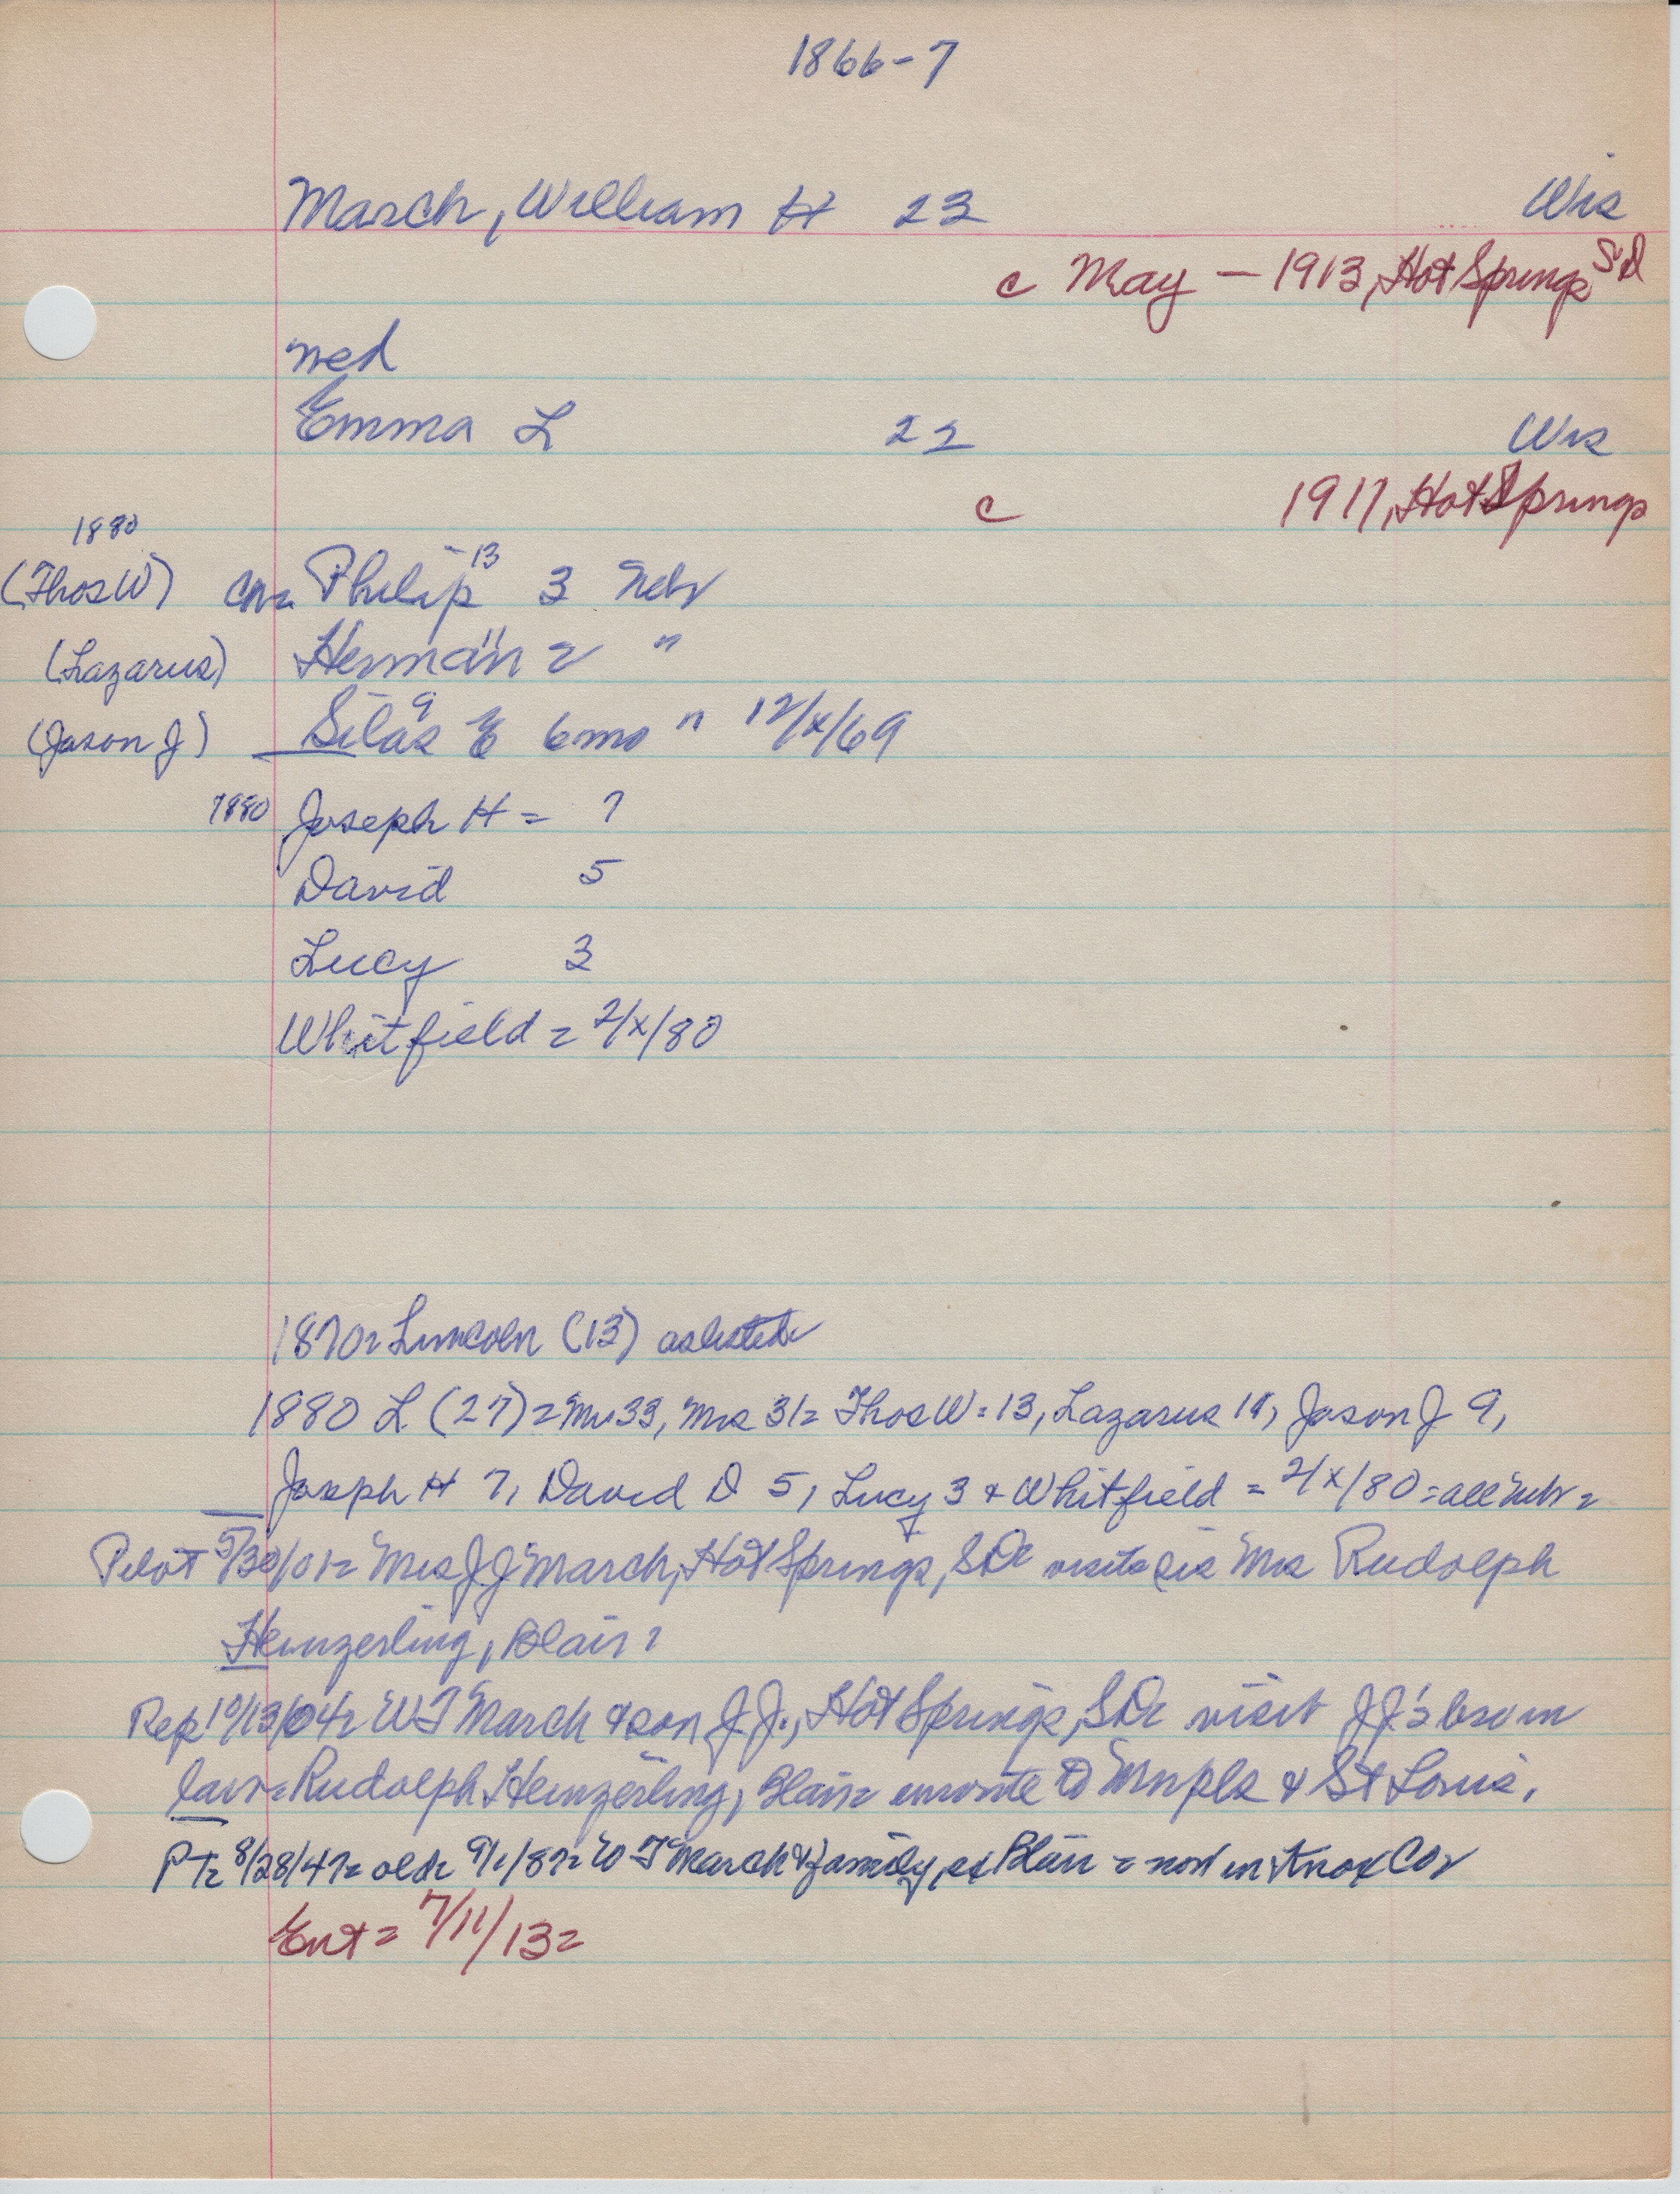 1866-7
March, William H 23 Wis
c May - 1913, Hot Springs SD
med
Emma L 22 Wis
c 1917, Hot Springs
1880
(Thos W) Ch= Philip 13 3 Nebr
(Lazarus) Herman 11 2 "
(Jason J) Silas 9 E 6mo " 12/x/69
1880 Joseph H = 7
David 5
Lucy 3
Whitfield = 2/x/80
1870= Lincoln (13) as listed=
1880 L (27)= Mr 33, Mrs 31= Thos W= 13, Lazarus 11, Jason J 9,
Joseph H 7, David D 5, Lucy 3 & Whitfield = 2/x/80 = all Nebr =
Pilot 5/30/01= Mrs J J March, Hot Springs, SD= visits sis Mrs Rudolph
Heinzerling, Blair=
Rep 10/13/04= W T March & son J.J., Hot Springs, SD= visit JJ's bro in
law= Rudolph Heinzerling, Blair= enroute to Mnpls & St Louis.
PT= 8/28/47= old= 9/1/87= W T March & family, ex Blair = now in Knox Co=
Ent = 7/11/13=